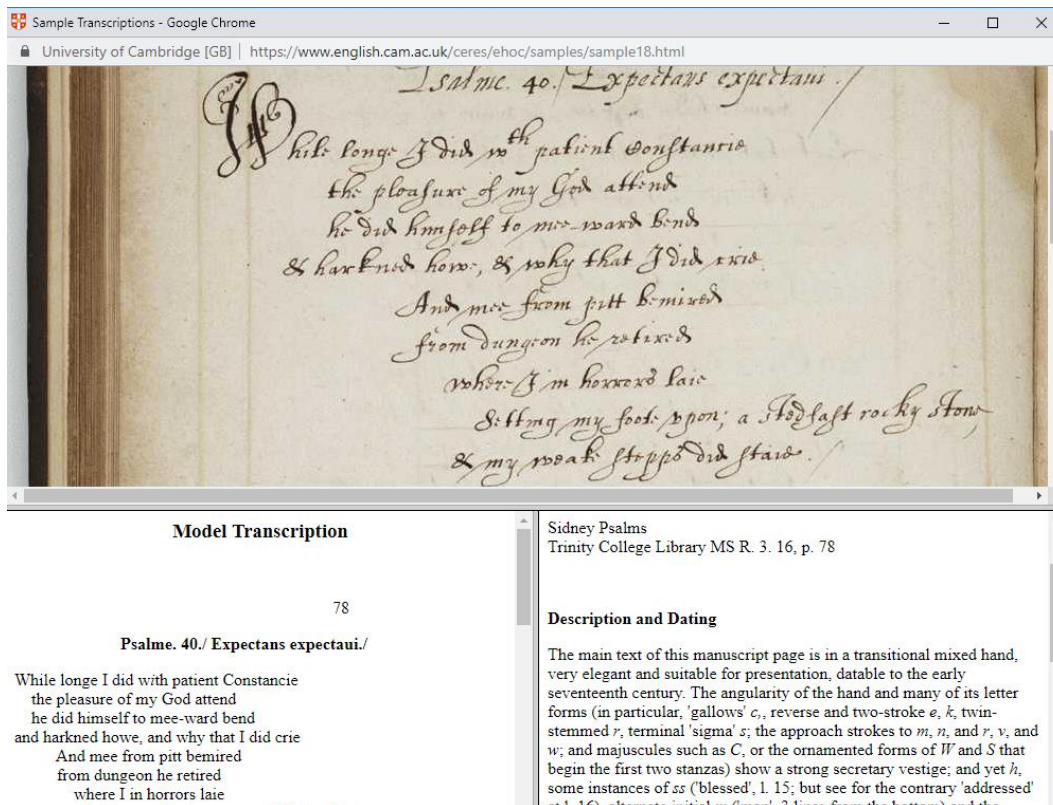 Sample Transcriptions - Google Chrome
University of Cambridge [GB] | https://www.english.cam.ac.uk/ceres/ehoc/samples/sample18.html
Psalme. 40./ Expectans expectaui./
While longe I did wth patient Constancie
the pleasure of my God attend
he did himself to mee-ward bend
& harkned howe, & why that I did crie
And mee from pitt bemired
from dungeon he retired
where I in horrors laie
Setting my foote vpon; a stedfast rocky stone
& my weake stepps did staie.
Model Transcription
78
Psalme. 40./ Expectans expectaui./
While longe I did with patient Constancie
the pleasure of my God attend
he did himself to mee-ward bend
and harkned howe, and why that I did crie
And mee from pitt bemired
from dungeon he retired
where I in horrors laie
Sidney Psalms
Trinity College Library MS R. 3. 16, p. 78
Description and Dating
The main text of this manuscript page is in a transitional mixed hand,
very elegant and suitable for presentation, datable to the early
seventeenth century. The angularity of the hand and many of its letter
forms (in particular, 'gallows' c,, reverse and two-stroke e, k, twin-
stemmed r, terminal 'sigma' s; the approach strokes to m, n, and r, v, and
w; and majuscules such as C, or the ornamented forms of W and S that
begin the first two stanzas) show a strong secretary vestige; and yet h,
some instances of ss ('blessed', l. 15; but see for the contrary 'addressed'